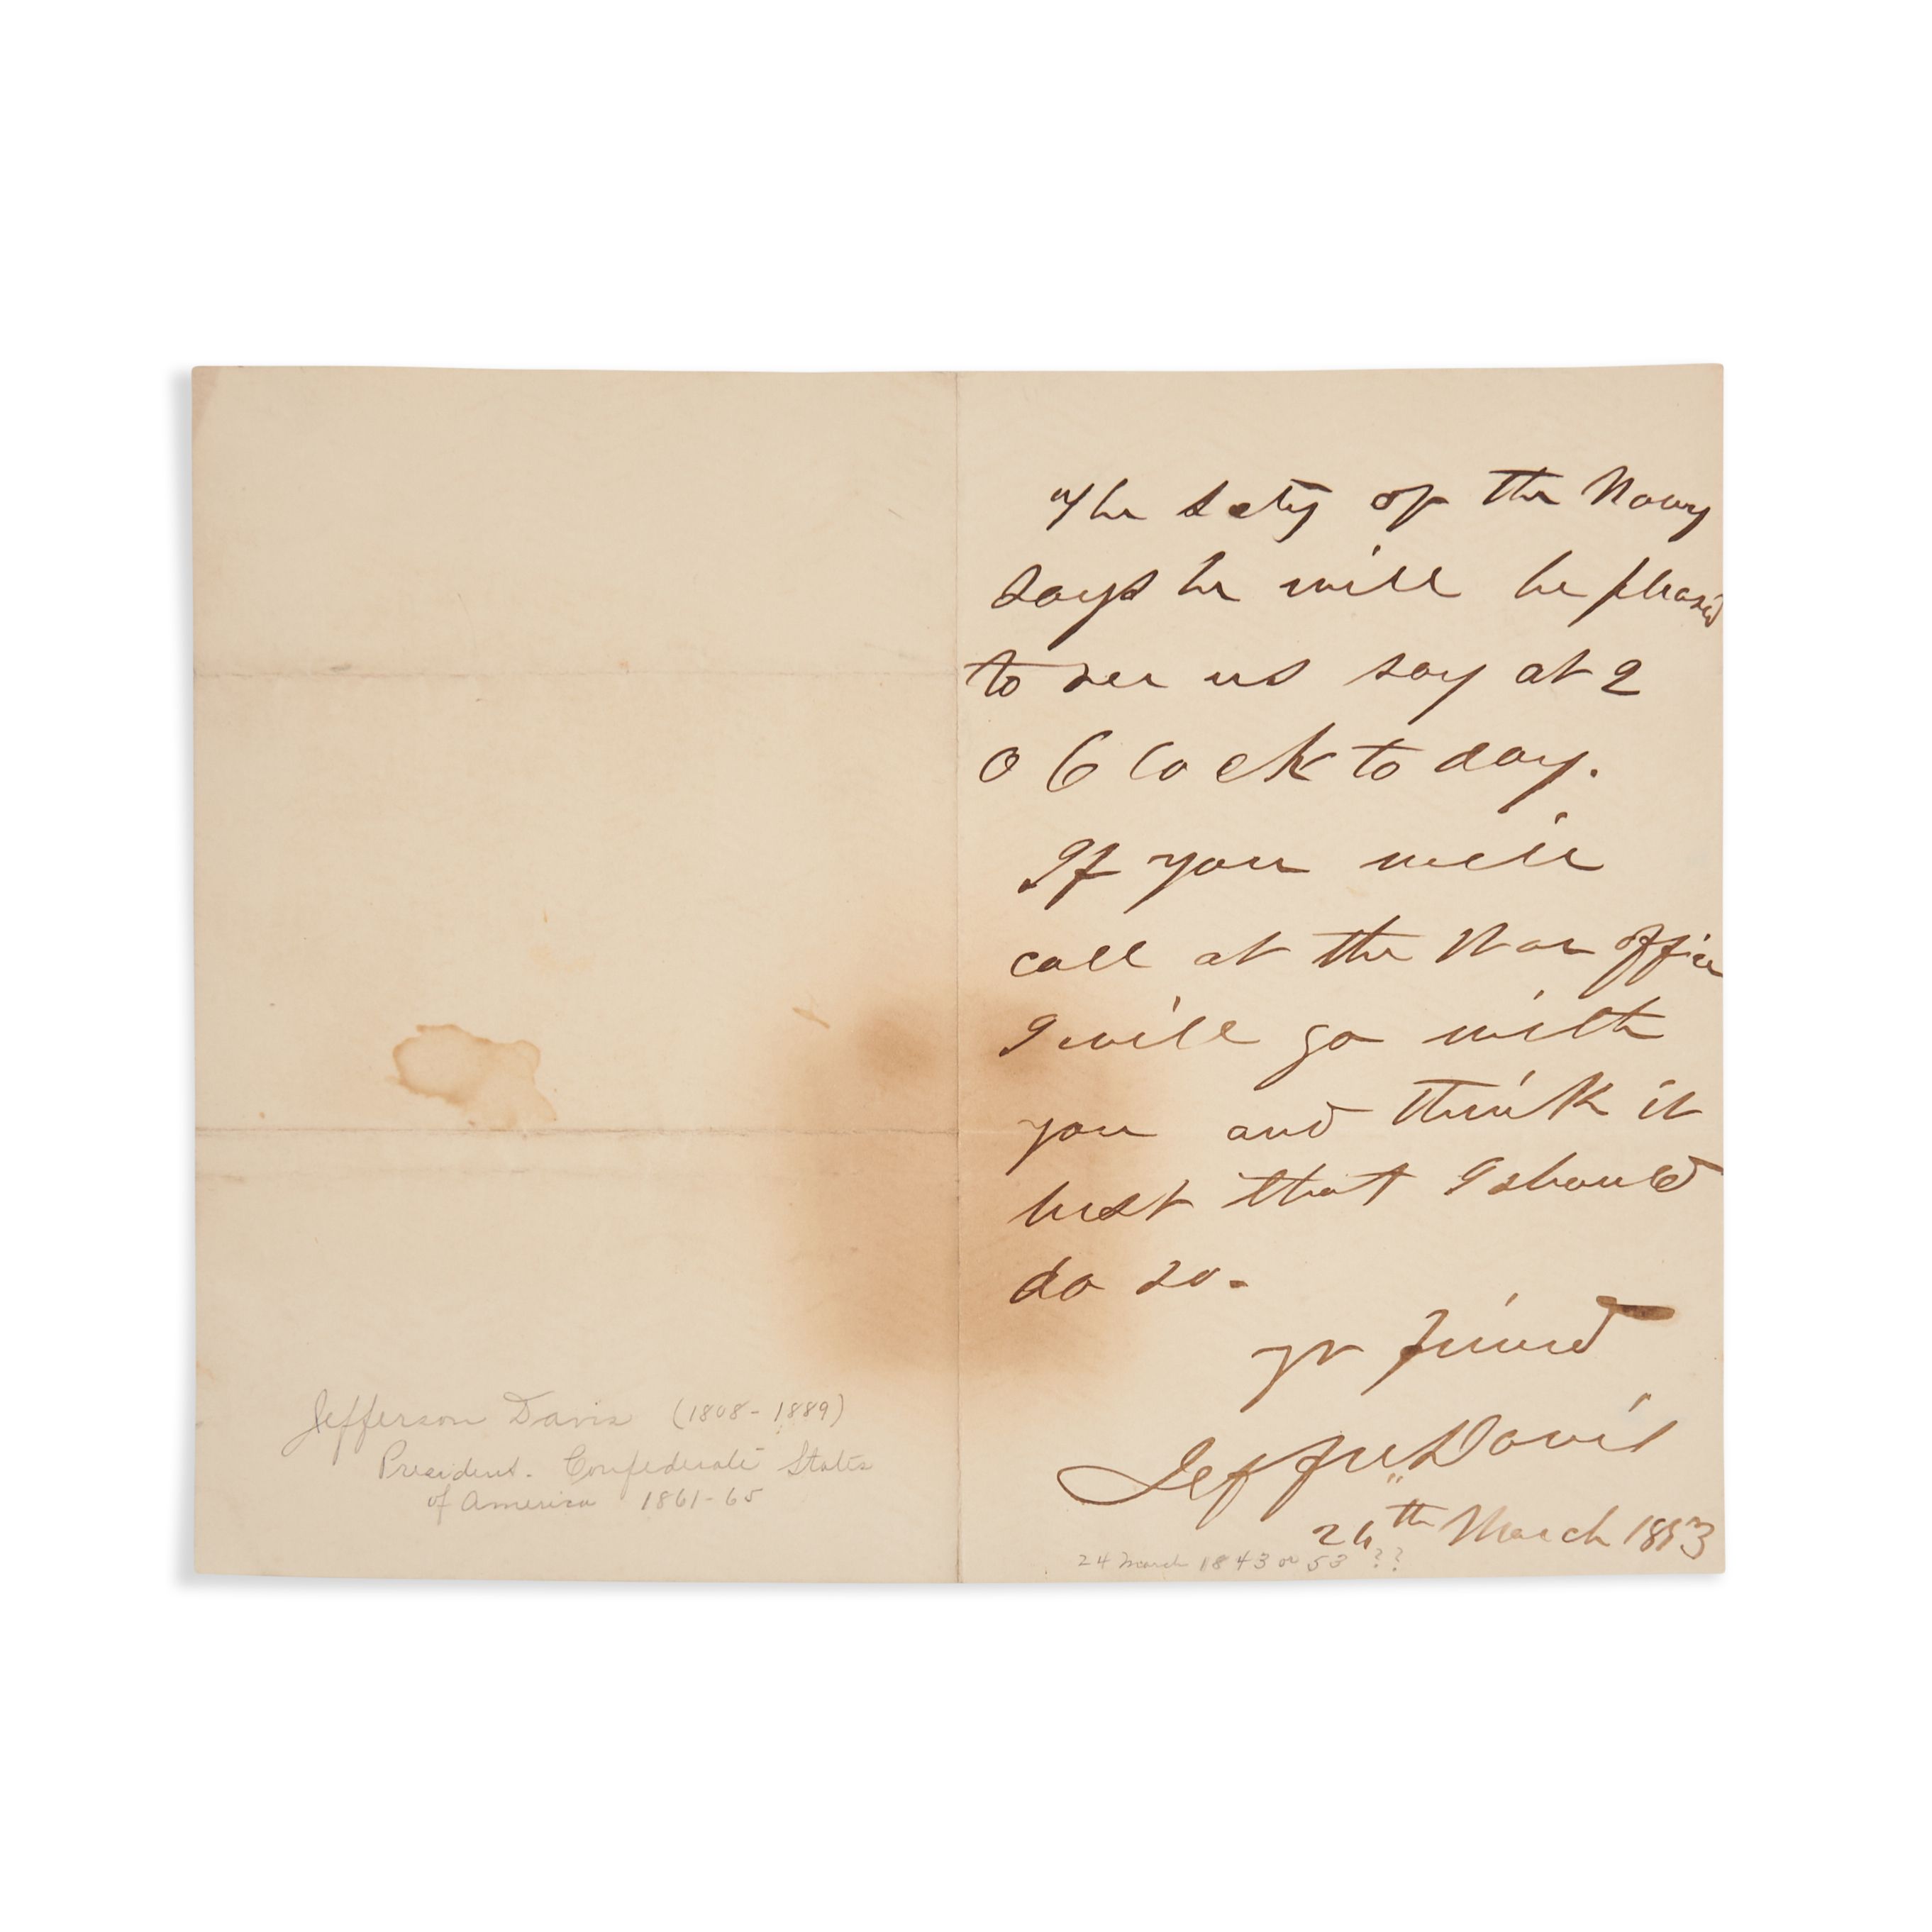 Jefferson Davis (1808-1889)
President. Confederate States
of America 1861-65
The Scty of the Navy
says he will be pleased
to see us say at 2
O Clock to day.
If you will
call at the War Office
I will go with
you and think it
best that I should
do so-
yr friend
Jeffn Davis
24th March 1853
24 March 1843 or 53 ??